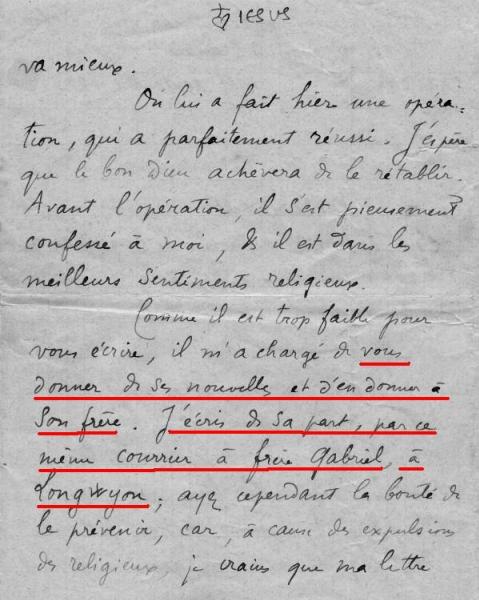 IESUS
va mieux.
On lui a fait hier une opéra-
tion, qui a parfaitement réussi. J'espère
que le bon Dieu achèvera de le rétablir.
Avant l'opération, il s'est pieusement
confessé à moi, & il est dans les
meilleurs sentiments religieux.
Comme il est trop faible pour
vous écrire, il m'a chargé de vous
donner de ses nouvelles et d'en donner à
son frère. J'écris de sa part, par ce
même courrier à frère Gabriel, à
Longuyon; ayez cependant la bonté de
le prévenir, car, à cause des expulsions
des religieux, je crains que ma lettre